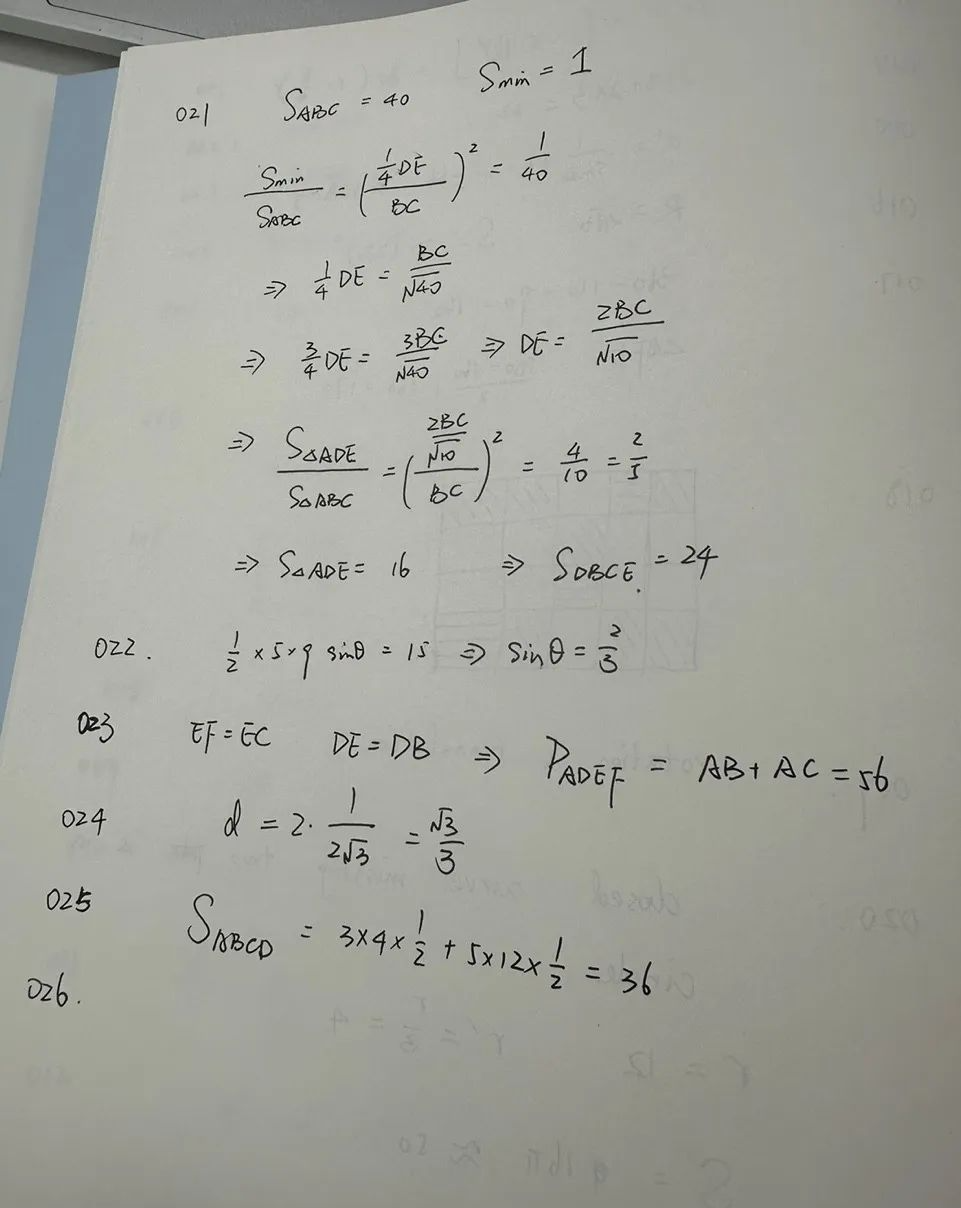 021 S_ABC = 40 S_min = 1
S_min / S_ABC = (1/4 DE / BC)^2 = 1/40
⇒ 1/4 DE = BC/√40
⇒ 3/4 DE = 3BC/√40 ⇒ DE = 2BC/√10
⇒ S_△ADE / S_△ABC = (2BC/√10 / BC)^2 = 4/10 = 2/5
⇒ S_△ADE = 16 ⇒ S_DBCE = 24
022. 1/2 × 5 × 9 sinθ = 15 ⇒ sinθ = 2/3
023 EF = EC DE = DB ⇒ P_ADEF = AB + AC = 56
024 d = 2 · 1/2√3 = √3/3
025 S_ABCD = 3×4×1/2 + 5×12×1/2 = 36
026.